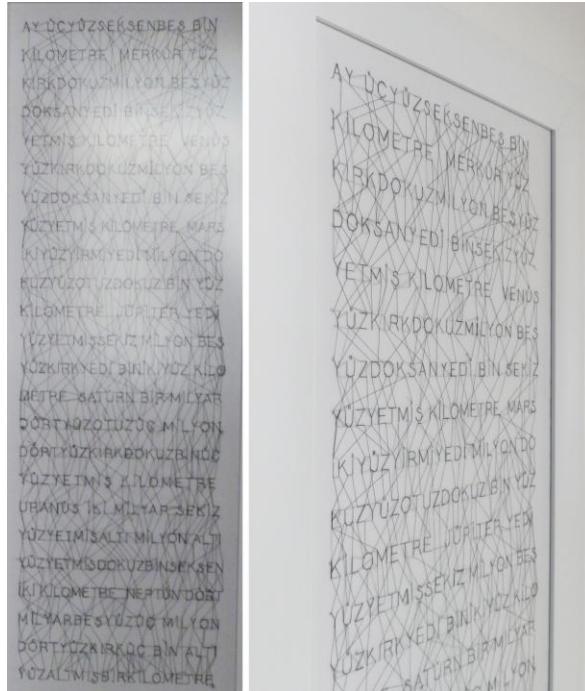 AY ÜÇYÜZSEKSENBEŞ BİN
KİLOMETRE MERKÜR YÜZ
KIRKDOKUZMİLYON BEŞYÜZ
DOKSANYEDİ BİNSEKİZYÜZ
YETMİŞ KİLOMETRE VENÜS
YÜZKIRKDOKUZMİLYON BEŞ
YÜZDOKSANYEDİ BİN SEKİZ
YÜZYETMİŞ KİLOMETRE MARS
İKİYÜZYİRMİYEDİ MİLYON DO
KUZYÜZOTUZDOKUZ BİN YÜZ
KİLOMETRE JÜPİTER YEDİ
YÜZYETMİŞSEKİZ MİLYON BEŞ
YÜZKIRKYEDİ BİN İKİYÜZ KİLO
METRE SATÜRN BİR MİLYAR
DÖRTYÜZOTUZÜÇ MİLYON
DÖRTYÜZKIRKDOKUZ BİNÜÇ
YÜZYETMİŞ KİLOMETRE
URANÜS İKİ MİLYAR SEKİZ
YÜZYETMİŞALTI MİLYON ALTI
YÜZYETMİŞDOKUZBİNSEKSEN
İKİ KİLOMETRE NEPTÜN DÖRT
MİLYARBEŞYÜZÜÇ MİLYON
DÖRTYÜZKIRKÜÇ BİN ALTI
YÜZALTMIŞBİRKİLOMETRE
AY ÜÇYÜZSEKSENBEŞ BİN
KİLOMETRE MERKÜR YÜZ
KIRKDOKUZMİLYON BEŞYÜZ
DOKSANYEDİ BİNSEKİZYÜZ
YETMİŞ KİLOMETRE VENÜS
YÜZKIRKDOKUZMİLYON BEŞ
YÜZDOKSANYEDİ BİN SEKİZ
YÜZYETMİŞ KİLOMETRE MARS
İKİYÜZYİRMİYEDİ MİLYON DO
KUZYÜZOTUZDOKUZ BİN YÜZ
KİLOMETRE JÜPİTER YEDİ
YÜZYETMİŞSEKİZ MİLYON BEŞ
YÜZKIRKYEDİ BİN İKİYÜZ KİLO
SATÜRN BİR MİLYAR
MİLYON